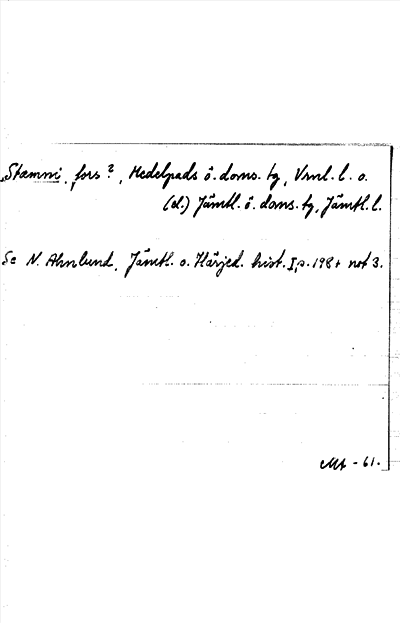 Stæmni, fors?, Medelpads ö. doms. tg, Vnrl. l. o.
(el.) Jämtl. ö. doms. tg, Jämtl. l.
Se N. Ahnlund, Jämtl. o. Härjed. hist. I, p. 198 + not 3.
-61.